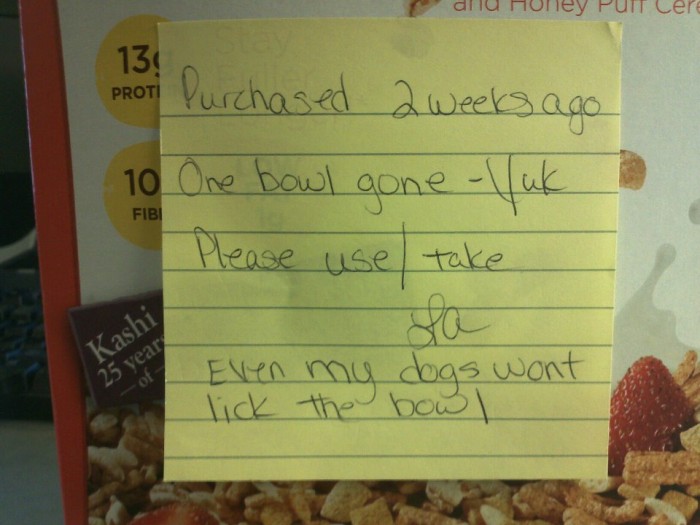 and Honey Puff Cere
13g
PROTE
10
FIB
Purchased 2 weeks ago
One bowl gone - Yuk
Please use/take
Even my dogs wont
lick the bowl
Kashi
25 years
of